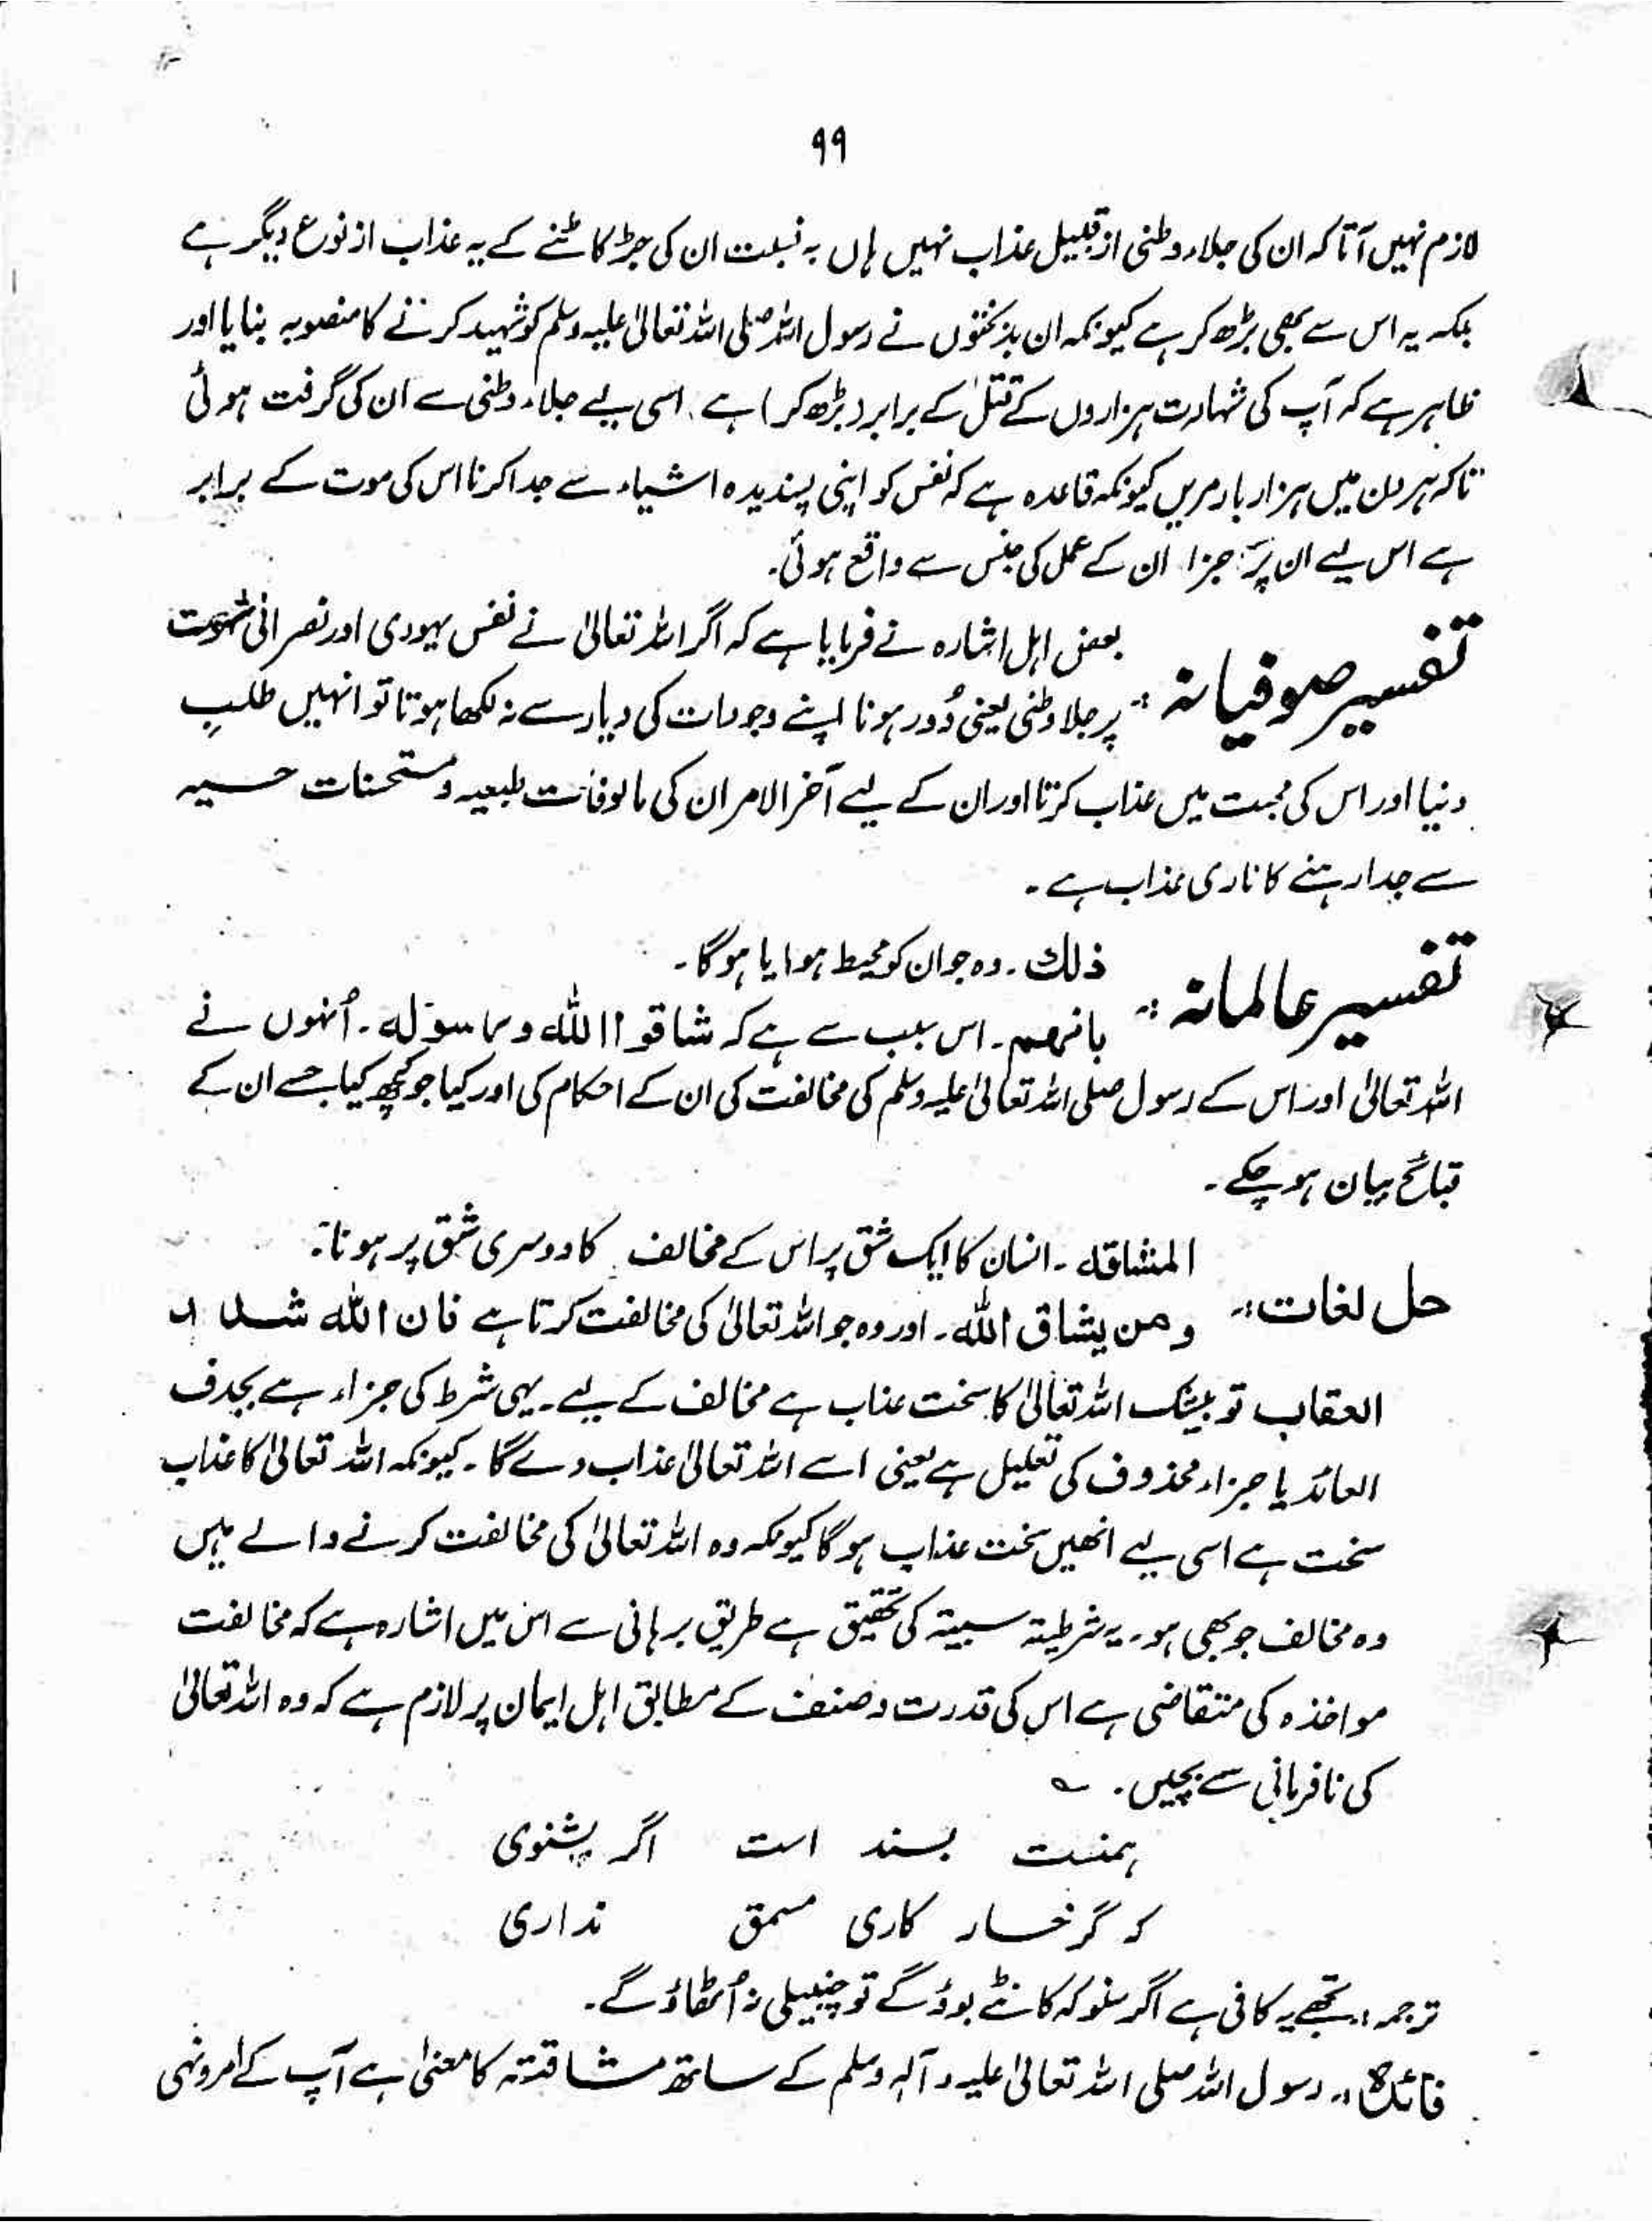 ۹۹
لازم نہیں آتا کہ ان کی جلاء وطنی از قبیل عذاب نہیں ہاں بہ نسبت ان کی جڑ کاٹنے کے یہ عذاب از نوع دیگر ہے
بلکہ یہ اس سے بھی بڑھ کر ہے کیونکہ ان بدبختوں نے رسول اللہ صلی اللہ تعالیٰ علیہ وسلم کو شہید کرنے کا منصوبہ بنایا اور
ظاہر ہے کہ آپ کی شہادت ہزاروں کے قتل کے برابر (بڑھ کر) ہے۔ اسی لیے جلاء وطنی سے ان کی گرفت ہوئی
تاکہ ہر دن میں ہزار بار مریں کیونکہ قاعدہ ہے کہ نفس کو اپنی پسندیدہ اشیاء سے جدا کرنا اس کی موت کے برابر
ہے اس لیے ان پر جزا ان کے عمل کی جنس سے واقع ہوئی۔
تفسیر صوفیانہ :۔ بعض اہل اشارہ نے فرمایا ہے کہ اگر اللہ تعالیٰ نے نفس یہودی اور نصرانی شہوت
پر جلا وطنی یعنی دُور ہونا اپنے وجودات کی دیار سے نہ لکھا ہوتا تو انہیں طلبِ
دنیا اور اس کی محبت میں عذاب کرتا اور ان کے لیے آخر الامر ان کی مالوفات طبعیہ و مستحسنات حسیہ
سے جدا رہنے کا ناری عذاب ہے۔
تفسیر عالمانہ :۔ ذلك۔ وہ جو ان کو محیط ہوا یا ہوگا۔
بانهم۔ اس سبب سے ہے کہ شاقوا الله ورسوله۔ اُنہوں نے
اللہ تعالیٰ اور اس کے رسول صلی اللہ تعالیٰ علیہ وسلم کی مخالفت کی ان کے احکام کی اور کیا جو کچھ کیا جسے ان کے
قبائح بیان ہو چکے۔
حل لغات :۔ المشاقه۔ انسان کا ایک شق پر اس کے مخالف کا دوسری شق پر ہونا۔
ومن يشاق الله۔ اور وہ جو اللہ تعالیٰ کی مخالفت کرتا ہے فان الله شديد
العقاب تو بیشک اللہ تعالیٰ کا سخت عذاب ہے مخالف کے لیے۔ یہی شرط کی جزاء ہے بحذف
العائد یا جزاء محذوف کی تعلیل ہے یعنی اسے اللہ تعالیٰ عذاب دے گا۔ کیونکہ اللہ تعالیٰ کا عذاب
سخت ہے اسی لیے انھیں سخت عذاب ہو گا کیونکہ وہ اللہ تعالیٰ کی مخالفت کرنے والے ہیں
وہ مخالف جو بھی ہو۔ یہ شرطیۃ سببیۃ کی تحقیق ہے طریق برہانی سے اس میں اشارہ ہے کہ مخالفت
مواخذہ کی متقاضی ہے اس کی قدرت و صنعف کے مطابق اہل ایمان پر لازم ہے کہ وہ اللہ تعالیٰ
کی نافرمانی سے بچیں۔ ؎
ہمنت بسند است اگر بشنوی
کہ گر خار کاری سمن ندروی
ترجمہ :۔ تجھے یہ کافی ہے اگر سنو کہ کانٹے بوؤ گے تو چنبیلی نہ اُٹھاؤ گے۔
فائدہ :۔ رسول اللہ صلی اللہ تعالیٰ علیہ و آلہ وسلم کے ساتھ مشاقتہ کا معنیٰ ہے آپ کے امر و نہی